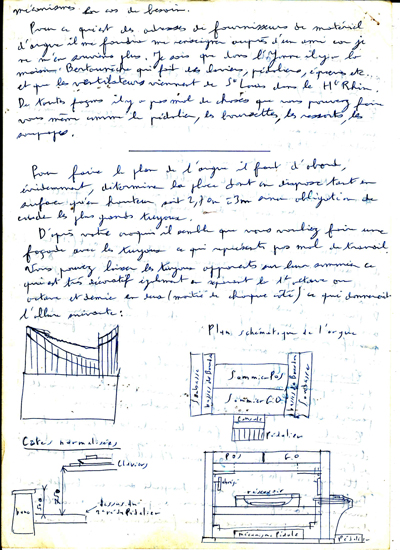 mécanismes en cas de besoin.
Pour ce qui est des adresses de fournisseurs de matériel
d'orgue il me faudra me renseigner auprès d'un ami car je
ne m'en souviens plus. Je sais que dans l' il y a la
maison qui fait des claviers, pédaliers, etc
et que les ventilateurs viennent de St Louis dans le Ht Rhin.
De toute façon il y a pas mal de choses que vous pouvez faire
vous même comme le pédalier, les boursettes, les ressorts, les
soupapes.
Pour faire le plan de l'orgue il faut d'abord,
évidemment, déterminer la place dont on dispose tant en
surface qu'en hauteur, soit 2,70m = 3m sinon obligation de
couder les plus grands tuyaux.
D'après votre croquis il semble que vous vouliez faire une
façade avec les tuyaux ce qui représente pas mal de travail
Vous pouvez laisser les tuyaux apparents sur leur sommier ce
qui est très décoratif également en séparant la 1e octave ou
octave et demie en deux (moitié de chaque côté) ce qui donnerait
l'allure suivante :
Plan schématique de l'orgue
Soubasse
basses de Bourdon
Sommier Pos
Sommier G.O
basses de Bourdon
Soubasse
Console
Pédalier
Cotes normalisées
Claviers
banc
dessus du
Pédalier
Pos
G.O
réservoir
mécanisme Pédale
Pédalier